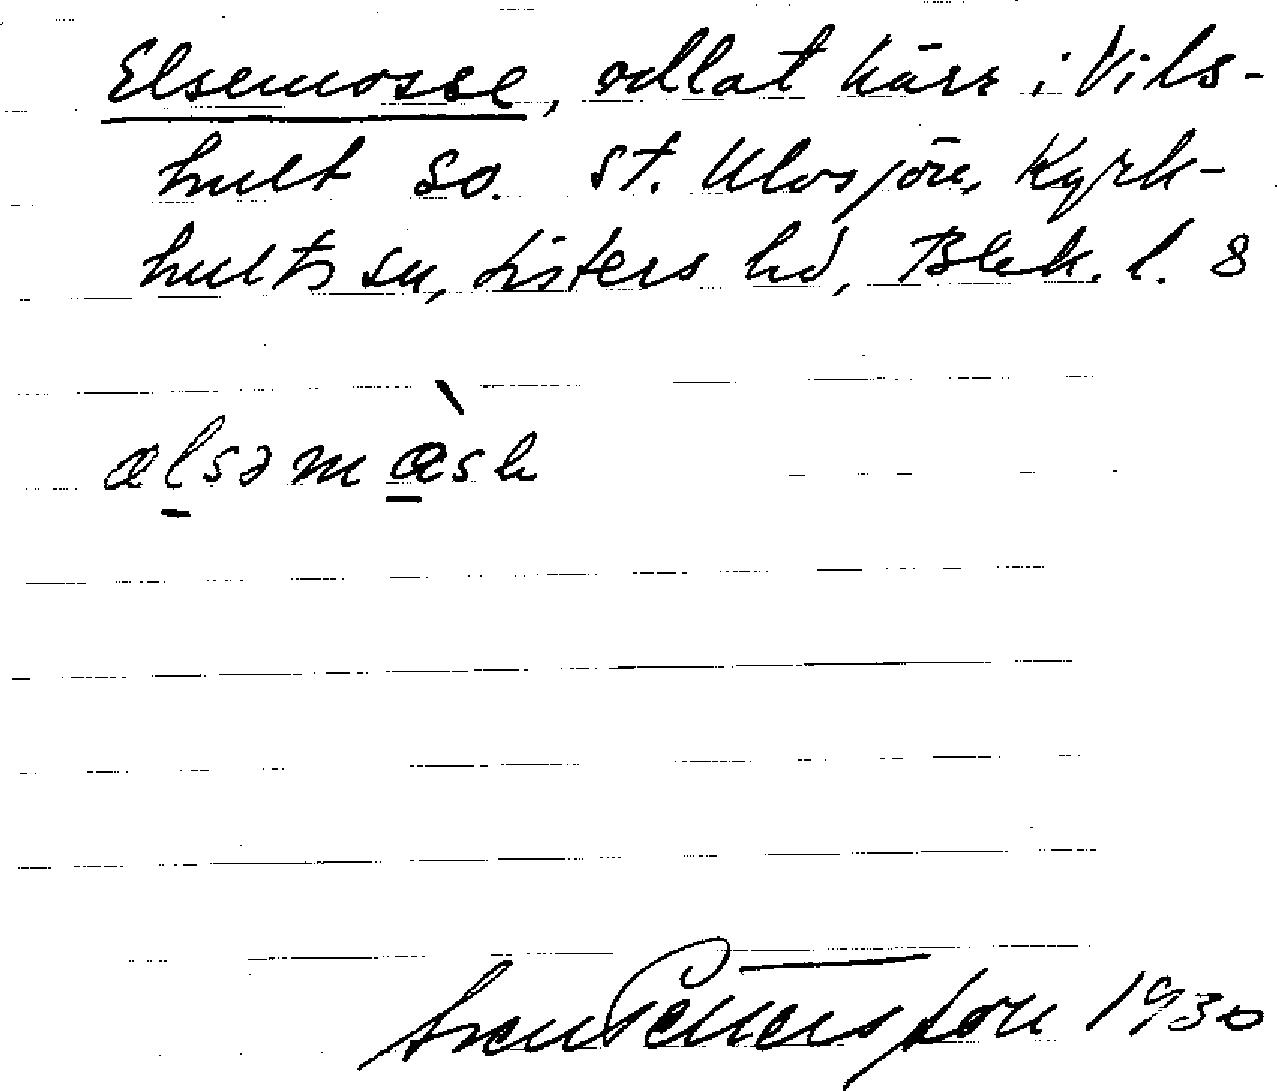 Elsemosse, odlat kärr i Vils-
hult so. St. Ulvsjön, Kyrk-
hults sn, Listers hd, Blek. l. 8
ælsəmòsk
Pettersson 1930